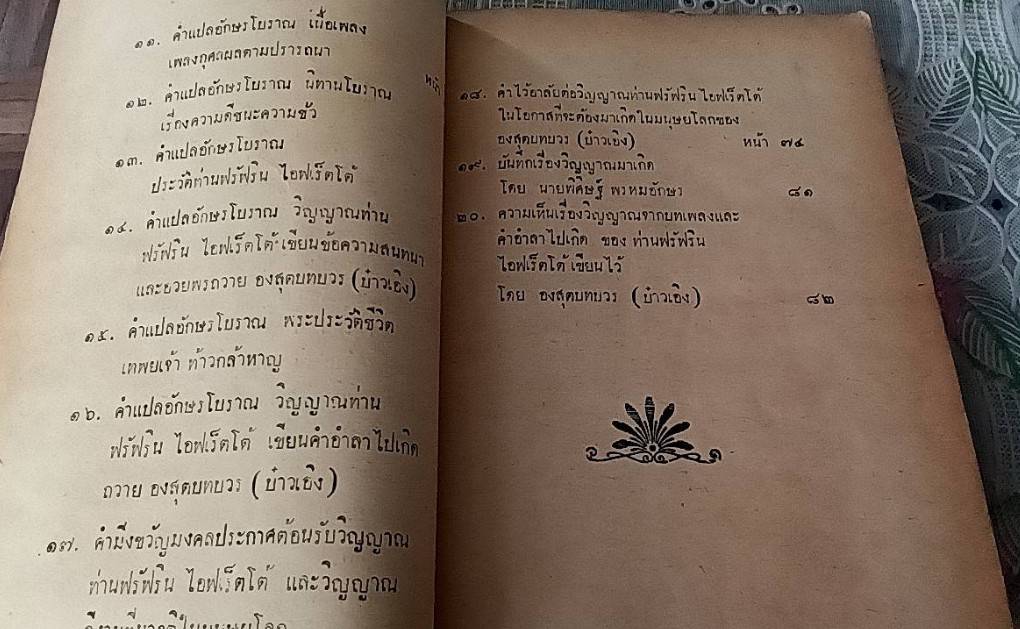 ๑๑. คำแปลอักษรโบราณ เนื้อเพลง
เพลงกุศลผลตามปรารถนา
หน้า
๑๒. คำแปลอักษรโบราณ นิทานโบราณ
เรื่องความดีชนะความชั่ว
๑๓. คำแปลอักษรโบราณ
ประวัติท่านฟรัฟริน ไอฟเร็ตโต้
๑๔. คำแปลอักษรโบราณ วิญญาณท่าน
ฟรัฟริน ไอฟเร็ตโต้ เขียนข้อความสนทนา
และอวยพรถวาย องสุตบทบวร (บ๋าวเอิง)
๑๕. คำแปลอักษรโบราณ พระประวัติชีวิต
เทพยเจ้า ท้าวกล้าหาญ
๑๖. คำแปลอักษรโบราณ วิญญาณท่าน
ฟรัฟริน ไอฟเร็ตโต้ เขียนคำอำลาไปเกิด
ถวาย องสุตบทบวร (บ๋าวเอิง)
๑๗. คำมิ่งขวัญมงคลประกาศต้อนรับวิญญาณ
ท่านฟรัฟริน ไอฟเร็ตโต้ และวิญญาณ
๑๘. คำไว้อาลัยต่อวิญญาณท่านฟรัฟริน ไอฟเร็ตโต้
ในโอกาสที่จะต้องมาเกิดในมนุษยโลกของ
องสุตบทบวร (บ๋าวเอิง) หน้า ๗๔
๑๙. บันทึกเรื่องวิญญาณมาเกิด
โดย นายพิศิษฐ์ พรหมอักษร ๘๑
๒๐. ความเห็นเรื่องวิญญาณจากบทเพลงและ
คำอำลาไปเกิด ของ ท่านฟรัฟริน
ไอฟเร็ตโต้ เขียนไว้
โดย องสุตบทบวร (บ๋าวเอิง) ๘๒